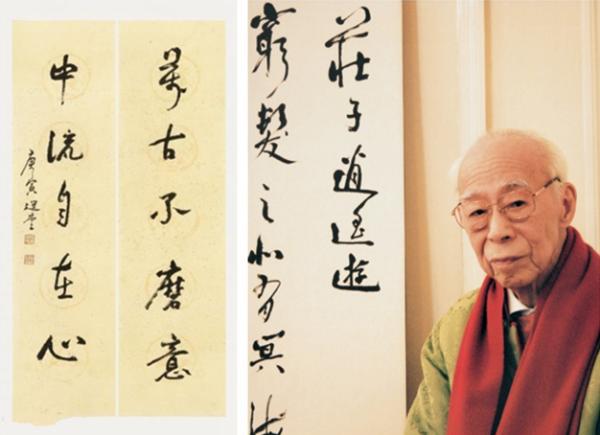 萬古不磨意
中流自在心
庚寅選堂
莊子逍遙遊
窮髮之北有冥海